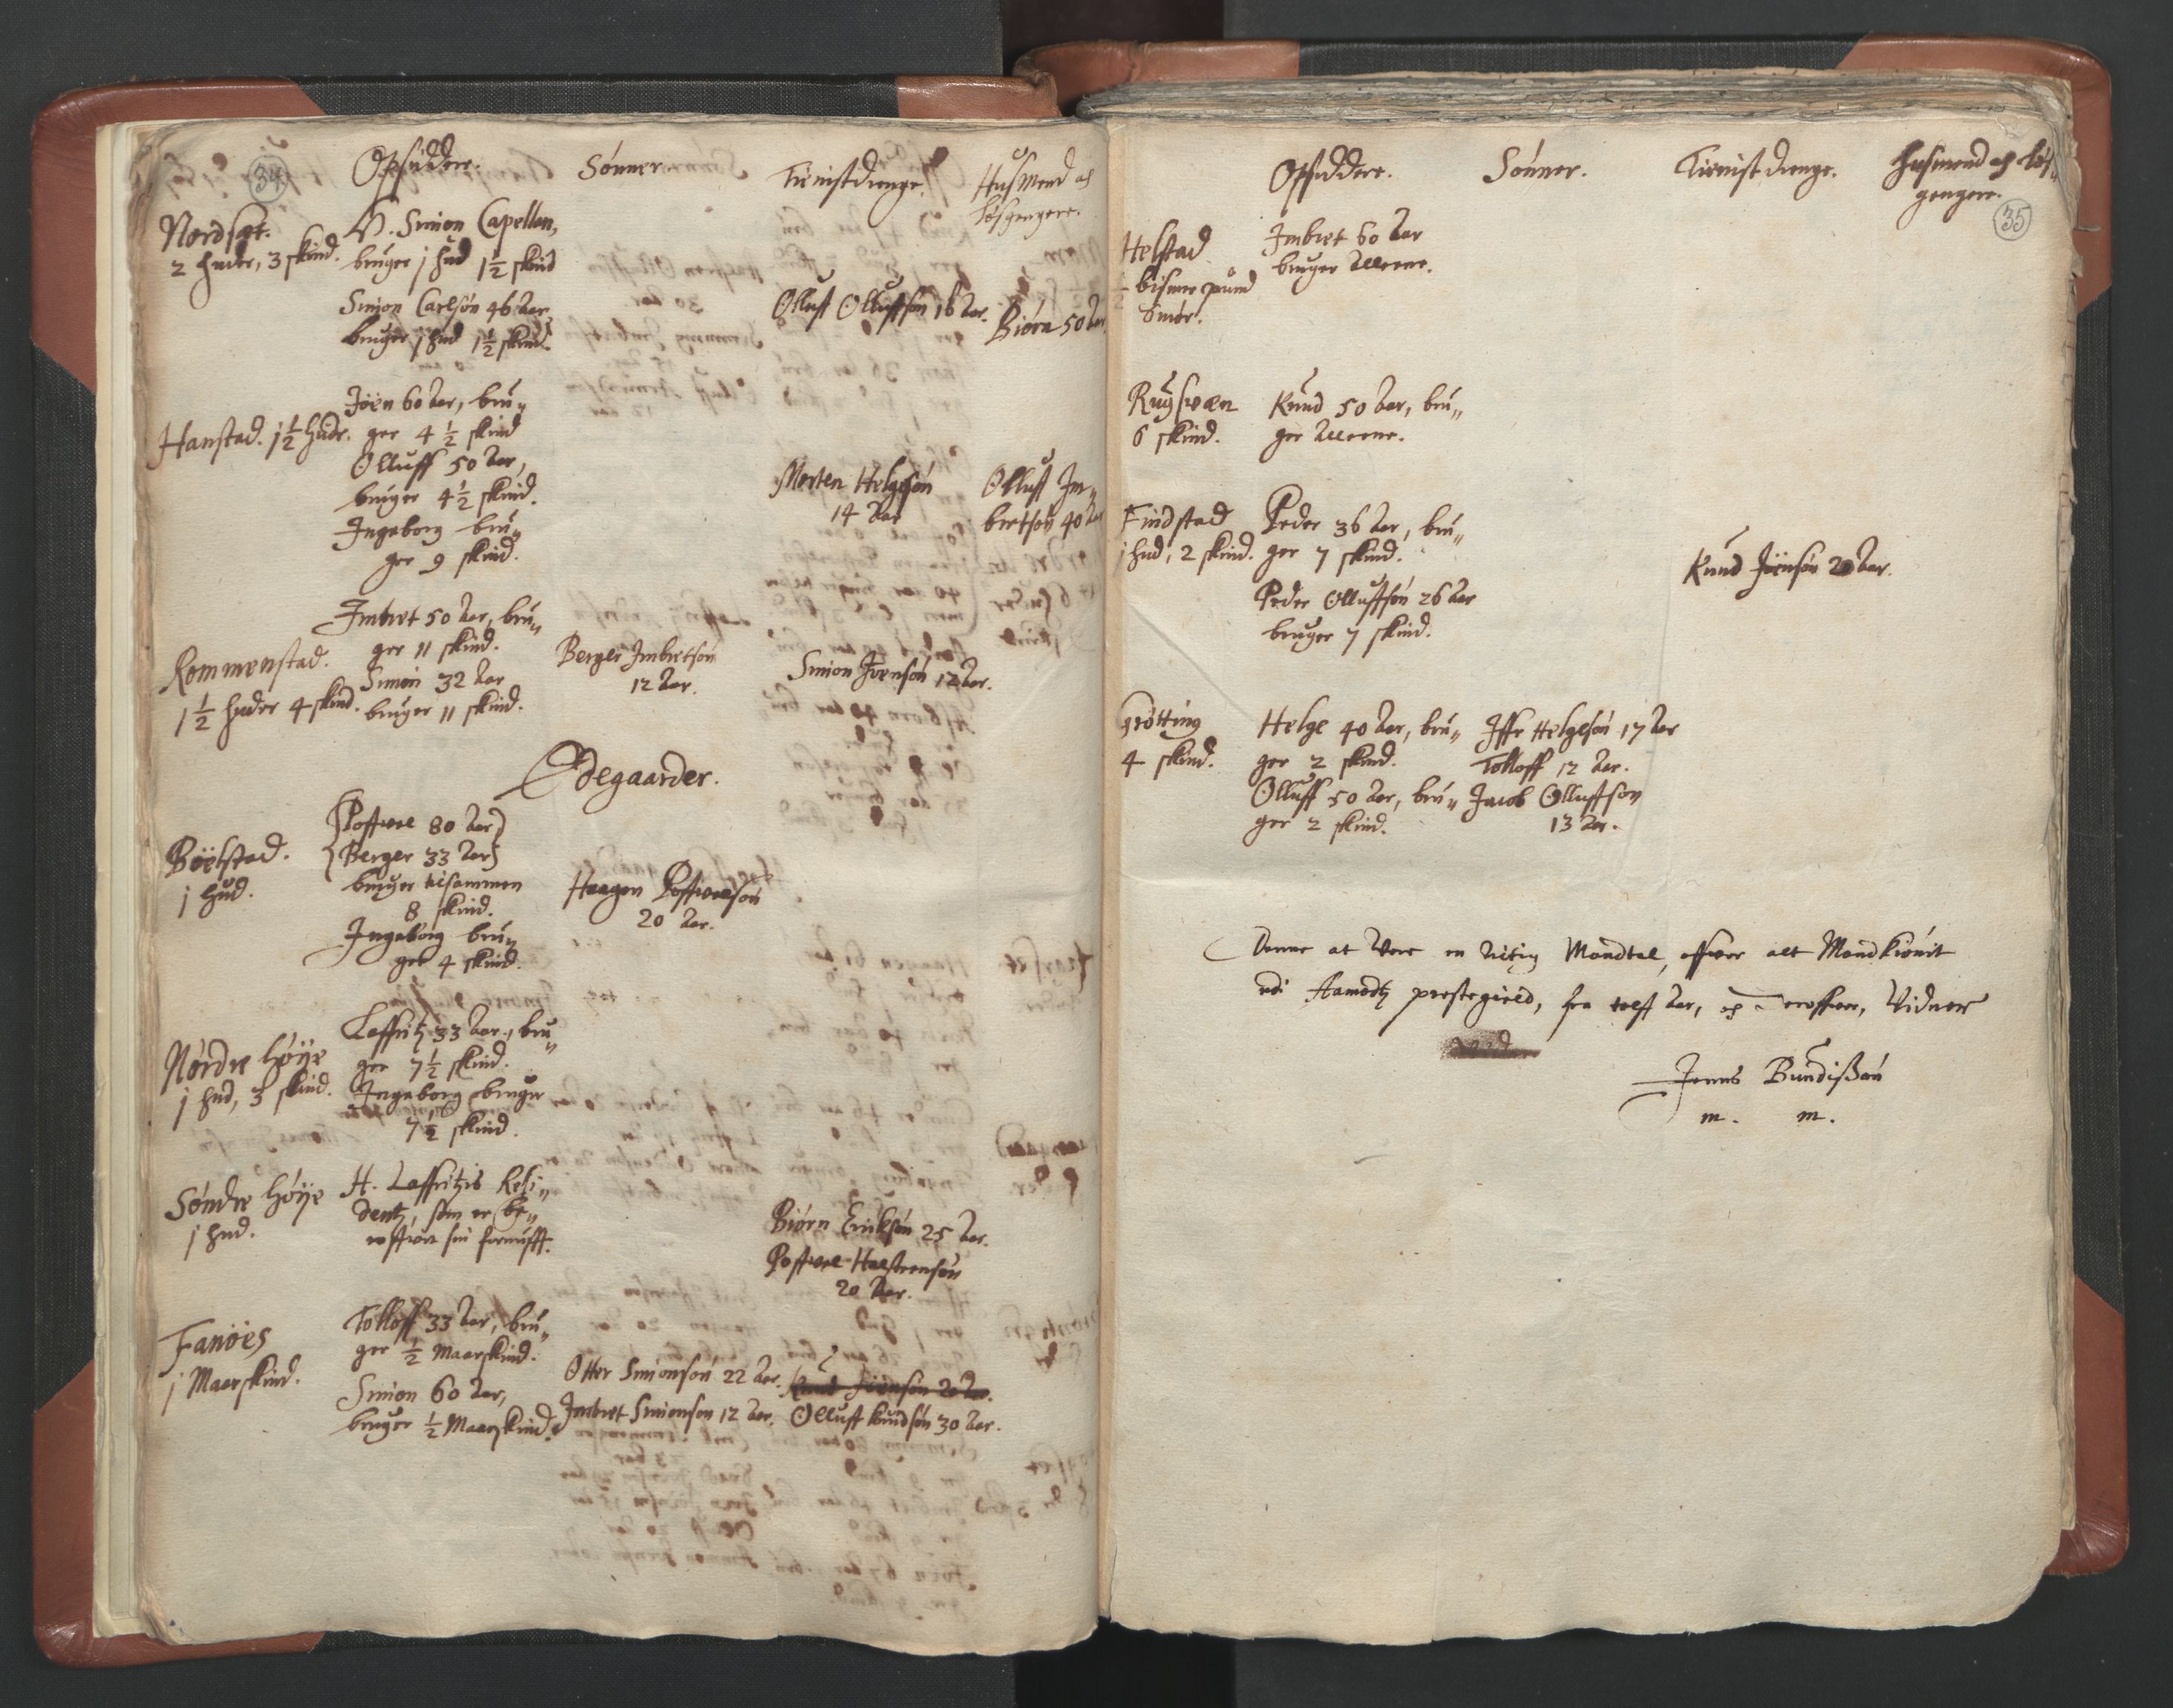 34
Opsiddere.
Sønner.
Tienistdrenge.
Husmend och
Løsgengere.
Nordset.
2 huder, 3 skind.
V. Simon Capellan,
bruger j hud 1½ skind
Simon Carlsøn 46 Aar,
bruger j hud 1½ skind.
Olluff Olluffsøn 16 Aar.
Biørn 50 Aar.
Hanstad. 1½ hude.
Joen 60 Aar, bru„
ger 4½ skind
Olluff 50 Aar,
bruger 4½ skind.
Ingeborg bru„
ger 9 skind.
Morten Helgesøn
14 Aar
Olluff Im„
bretsøn 40 Aar
Rommenstad.
1½ huder 4 skind.
Imbret 50 Aar, bru„
ger 11 skind.
Simon 32 Aar
bruger 11 skind.
Berger Imbretsøn
12 Aar.
Simon Iversøn 12 Aar.
Ødegaarder.
Böelstad.
j hud.
Poffvel 80 Aar
Berger 33 Aar
bruger tilsammen
8 skind.
Ingeborg bru„
ger 4 skind.
Haagen Poffvelsøn
20 Aar.
Nordre Høye
j hud, 3 skind.
Laffritz 33 Aar, bru„
ger 7½ skind.
Ingeborg bruger
7½ skind.
Søndre Høye
j hud.
H. Laffritzis Resi„
dentz, som er be„
røffvet sin fornufft.
Biørn Erichsøn 25 Aar.
Poffvel Halsteensøn
20 Aar.
Fanöes
j Maarskind.
Tolloff 33 Aar, bru„
ger ½ Maarskind.
Simon 60 Aar,
bruger ½ Maarskind.
Otter Simonsøn 22 Aar.
Imbret Simonsøn 12 Aar.
Knud Joensøn 20 Aar.
Olluff Knudsøn 30 Aar.
Opsiddere.
Sønner.
Tienist drenge.
Husmend och Løs„
gengere.
35
Helstad
½ bismer pund
Smør.
Imbret 60 Aar
bruger Alleene.
Rugsveen
6 skind.
Knud 50 Aar, bru„
ger Alleene.
Findstad
j hud, 2 skind.
Peder 36 Aar, bru„
ger 7 skind.
Peder Olluffsøn 26 Aar
bruger 7 skind.
Knud Joensøn 20 Aar.
Grötting
4 skind.
Helge 40 Aar, bru„
ger 2 skind.
Olluff 50 Aar, bru„
ger 2 skind.
Iffr Helgesøn 17 Aar
Tolloff 12 Aar.
Jacob Olluffsøn
13 Aar.
Denne at Vere en rictig Mandtal, offver alt Mandkiönit
udi Aamodtz prestegield, fra tolff Aar, och offver, Vidner
Jenns Bundißøn
m. m.